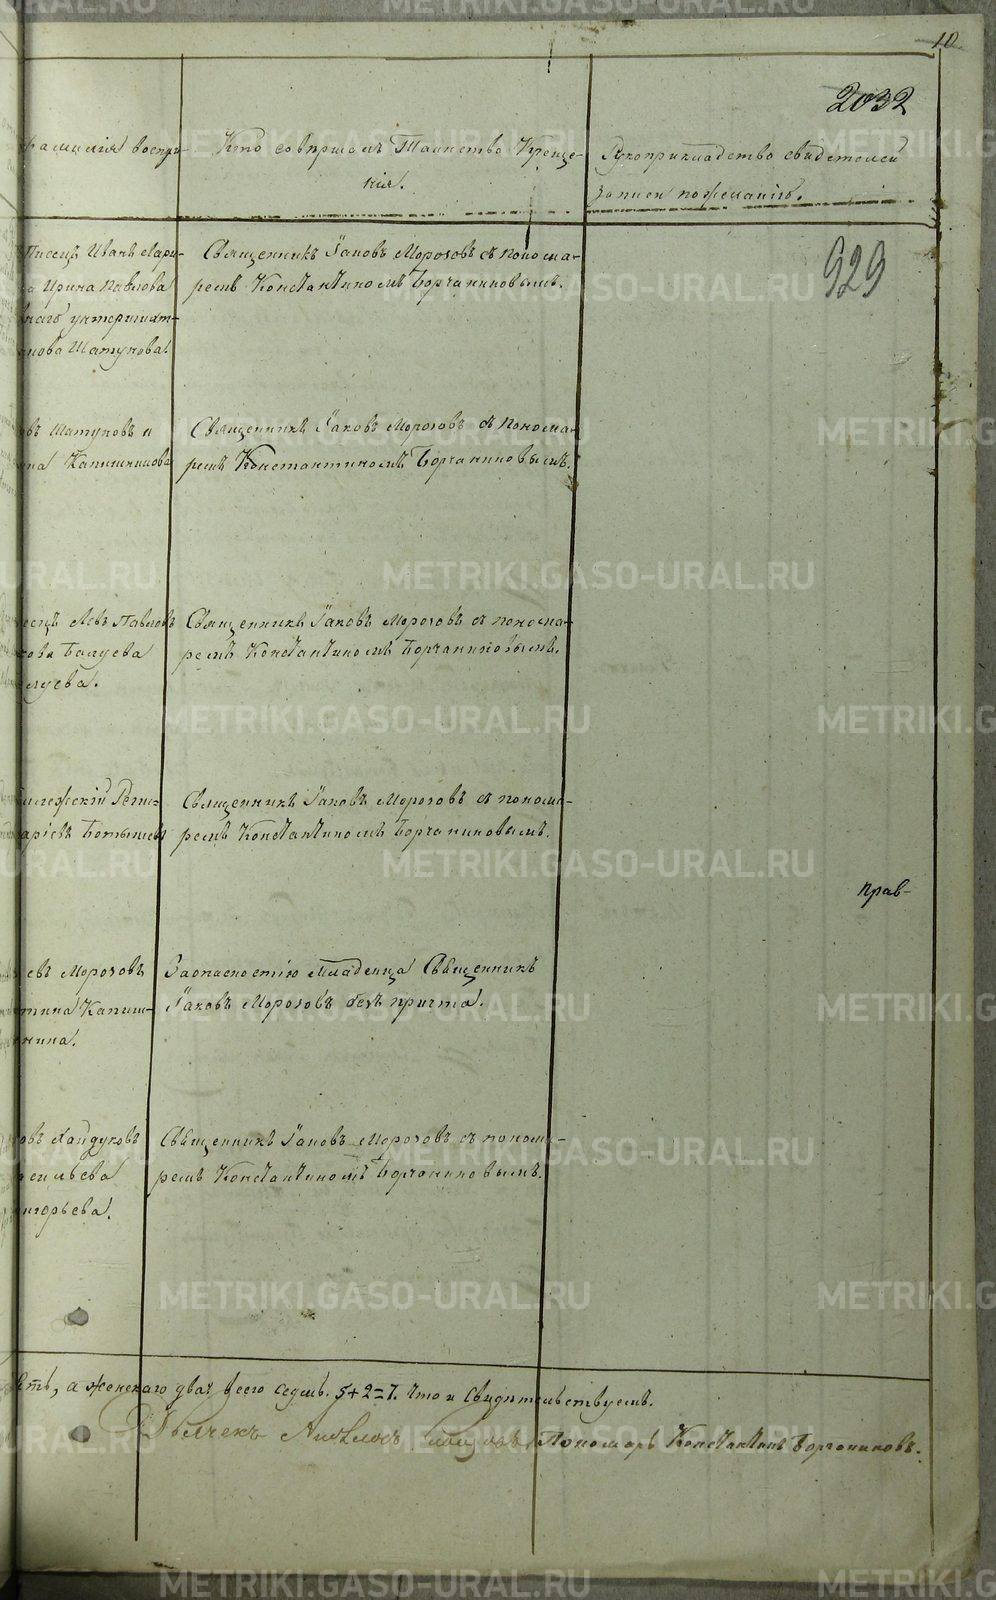 10
2032
фамилія воспри-
Кто совершалъ Таинство Креще-
нія.
Рукоприкладство свидѣтелей
записи по желанію.
929
Писецъ Иванъ Лари-
Ирина Павлова
унтершихт-
нова Шатунова.
Священникъ Іаковъ Морозовъ съ понома-
ремъ Константиномъ Борчаниновымъ.
овъ Шатуновъ и
на Капишникова
Священникъ Іаковъ Морозовъ съ понома-
ремъ Константиномъ Борчаниновымъ.
Левъ Павловъ
Балуева
луева.
Священникъ Іаковъ Морозовъ съ понома-
ремъ Константиномъ Борчаниновымъ.
Священникъ Іаковъ Морозовъ съ понома-
ремъ Константиномъ Борчаниновымъ.
прав-
евъ Морозовъ
Капиш-
нина.
За опасностію Младенца Священникъ
Іаковъ Морозовъ безъ причта.
овъ Хайдуковъ
сильева
игорьева.
Священникъ Іаковъ Морозовъ съ понома-
ремъ Константиномъ Борчаниновымъ.
а женскаго два, всего седмь. 5+2=7. Что и Свидѣтельствуемъ.
Дьячекъ Пономарь Константинъ Борчаниновъ.
METRIKI.GASO-URAL.RU